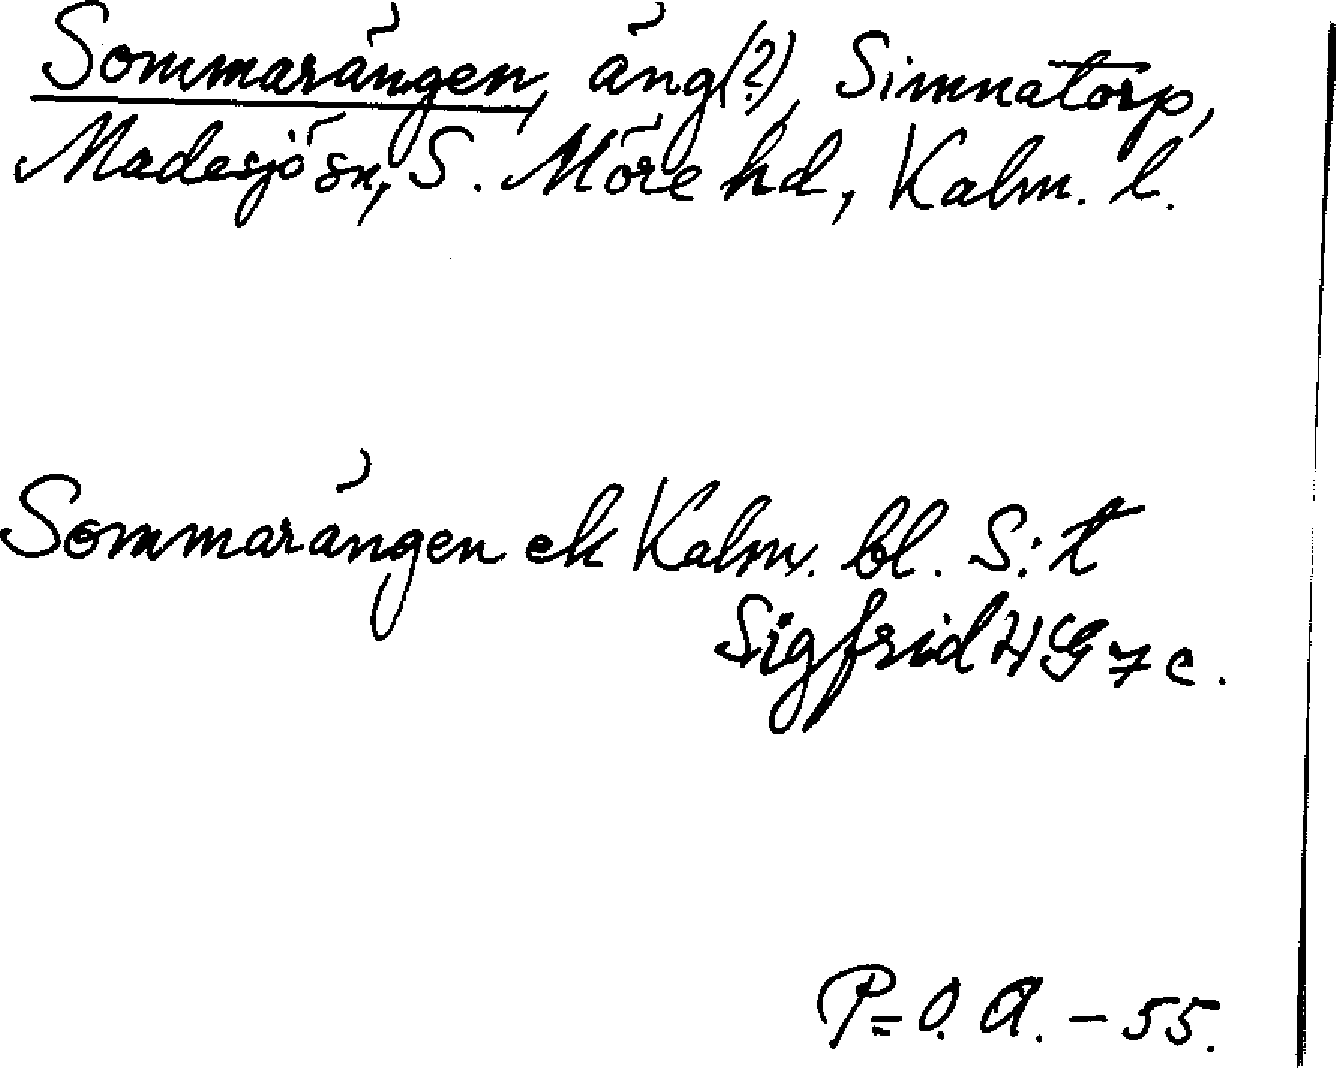 Sommarängen, äng(?), Simnatorp,
Madesjö sn, S. Möre hd, Kalm. l.
Sommarängen ek Kalm. bl. S:t
Sigfrid 4 G 7 c.
P=O. A. - 55.